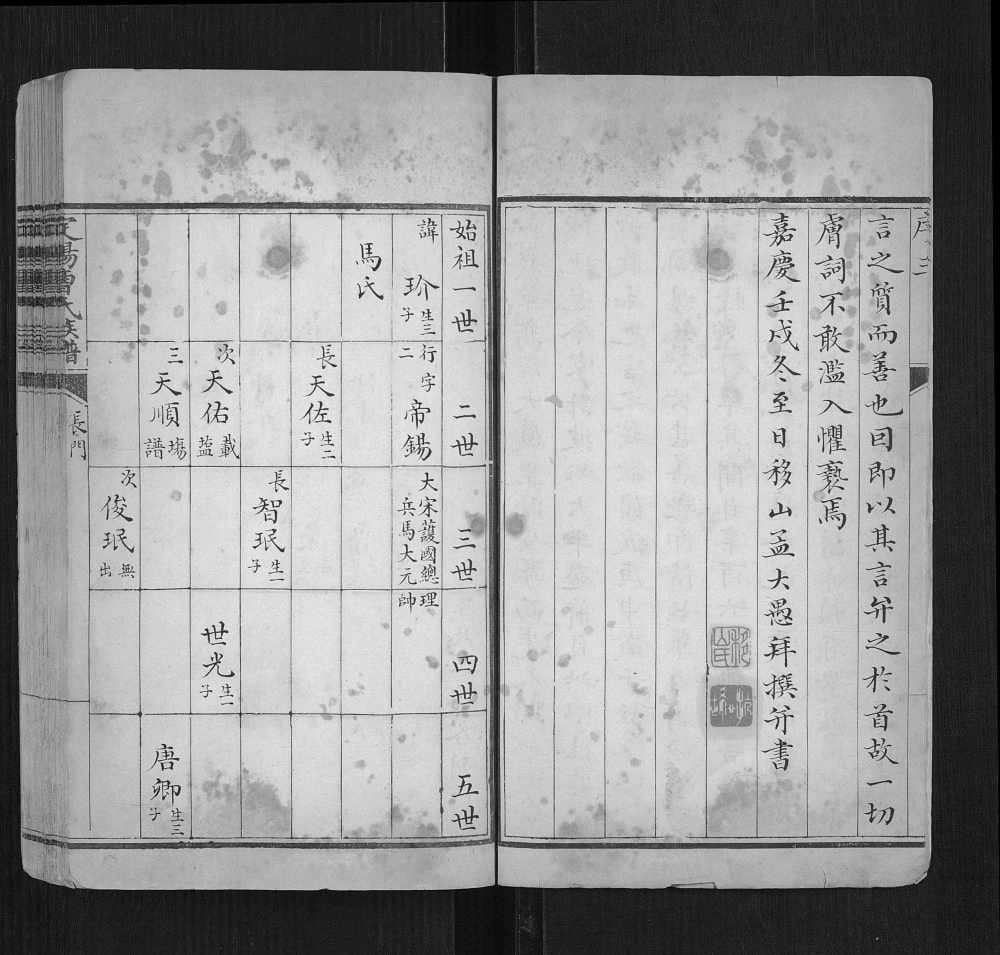 序 三
言之質而善也因即以其言弁之於首故一切
膚詞不敢濫入懼褻焉
嘉慶壬戌冬至日移山孟大愚拜撰並書
始祖一世
二世
三世
四世
五世
諱 玠 生三子
行二 字 帝錫
大宋護國總理兵馬大元帥
馬氏
長 天佐 生二子
長 智珉 生一子
次 天佑 載藍譜
世光 生一子
三 天順 塲譜
唐卿 生三子
次 俊珉 無出
曹氏族譜
長門